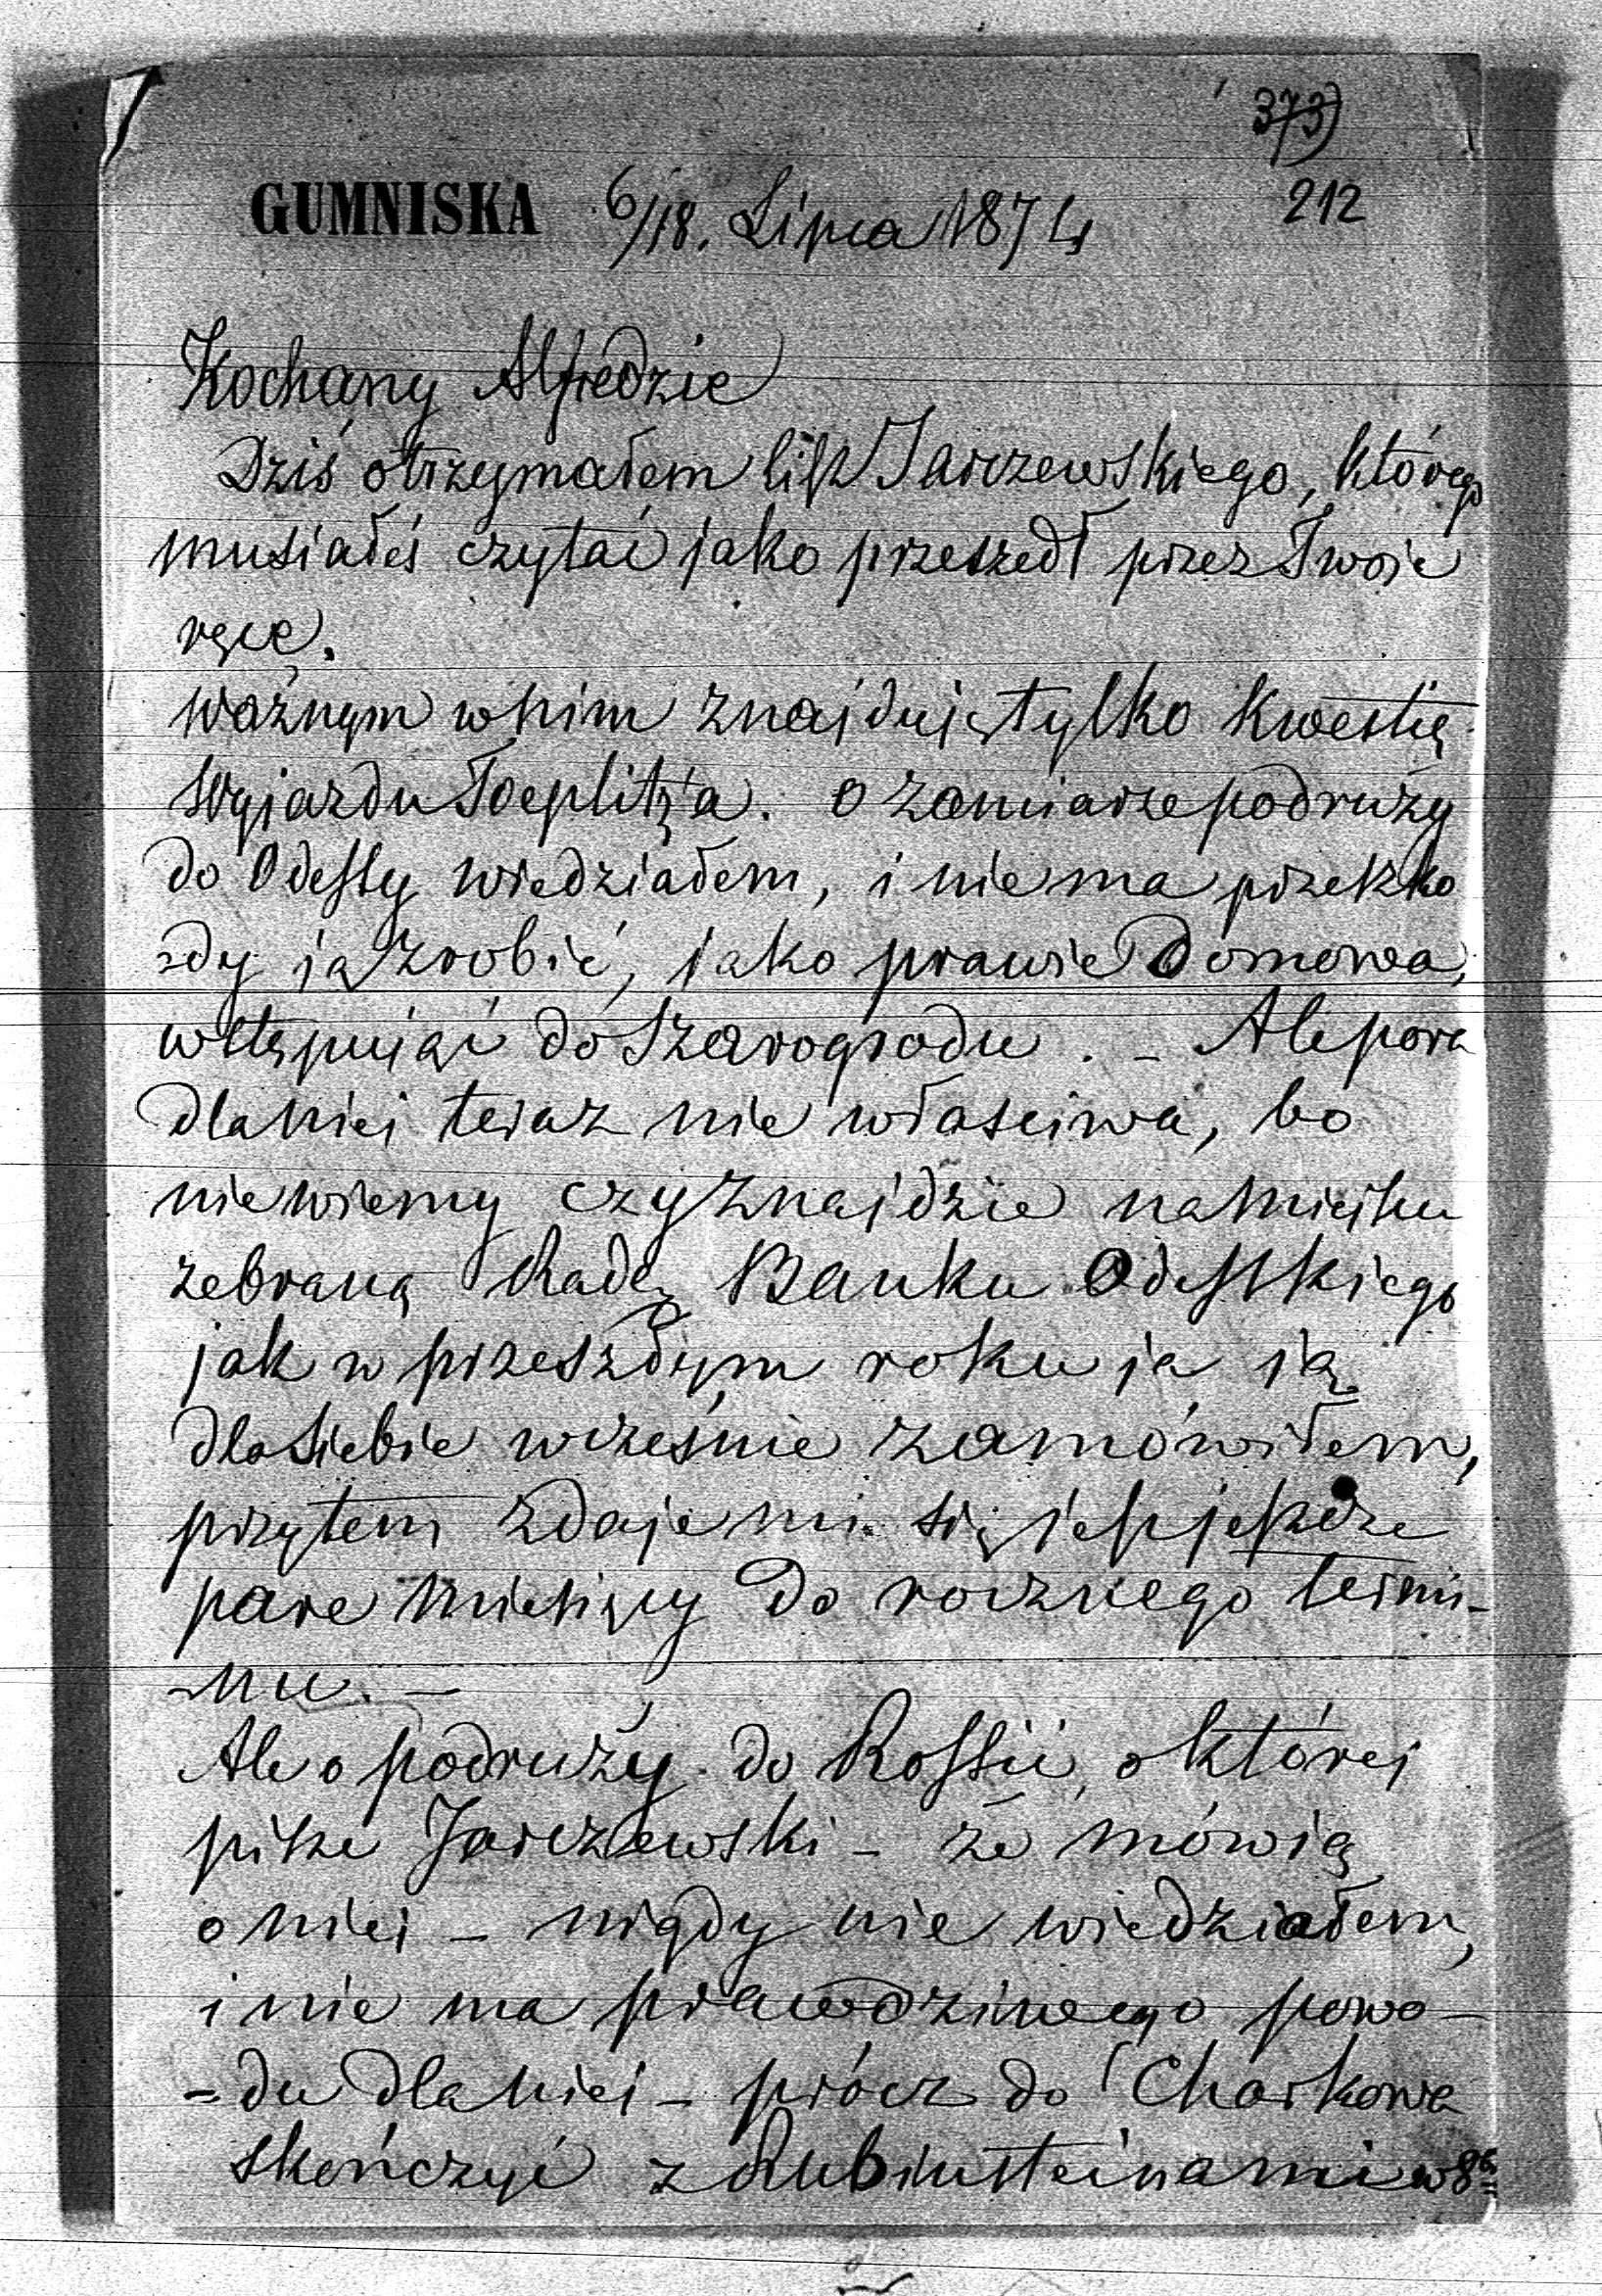 373)
212
GUMNISKA 6/18. Lipca 1874
Kochany Alfredzie
Dziś otrzymałem list Jarczewskiego, którego
musiałeś czytać jako przeszedł przez Twoje
ręce.
Ważnym w nim znajduję tylko kwestię
wyjazdu Toeplitz'a. O zamiarze podruży
do Odessy wiedziałem, i niema przeszko
-dy ją zrobić, jako prawie domowa,
wstępując do Szarogrodu. - Ale pora
dla niej teraz nie właściwa, bo
niewiemy czy znajdzie na miejscu
zebraną Radę Banku Odesskiego
jak w przeszłym roku ja ją
dla siebie wcześnie zamówiłem,
przytem zdaje mi się jest jeszcze
pare miesięcy do rocznego termi-
-nu. -
Ale o podruży do Rossii, o której
pisze Jarczewski - że mówią
o niej - nigdy nie wiedziałem,
i nie ma prawdziwego powo-
-du dla niej - prócz do Charkowa
skończyć z Rubinsteinami